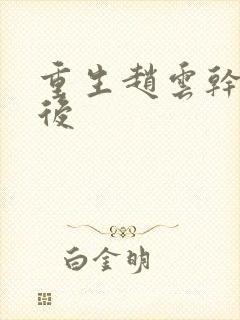 重生趙雲幹
後
白金明